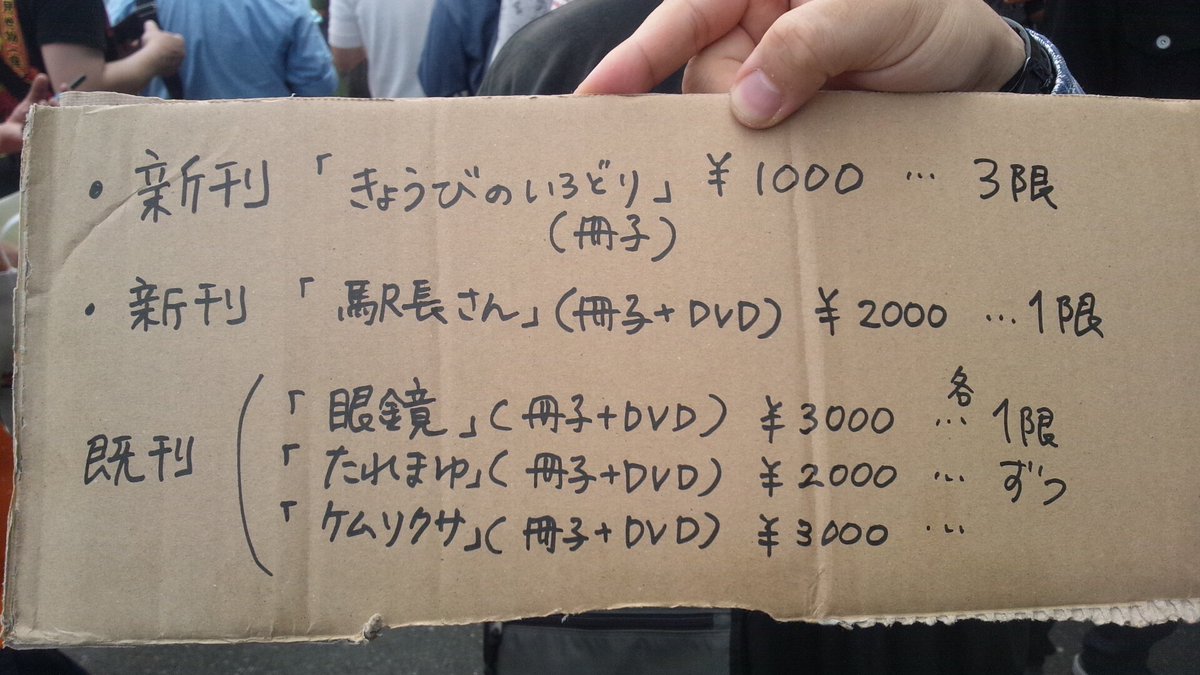 ・新刊「きょうびのいろどり」￥1000 … 3限
(冊子)
・新刊「駅長さん」(冊子+DVD) ￥2000 …1限
既刊
「眼鏡」(冊子+DVD) ￥3000 … 各1限
「たれまゆ」(冊子+DVD) ￥2000 … ずつ
「ケムリクサ」(冊子+DVD) ￥3000 …